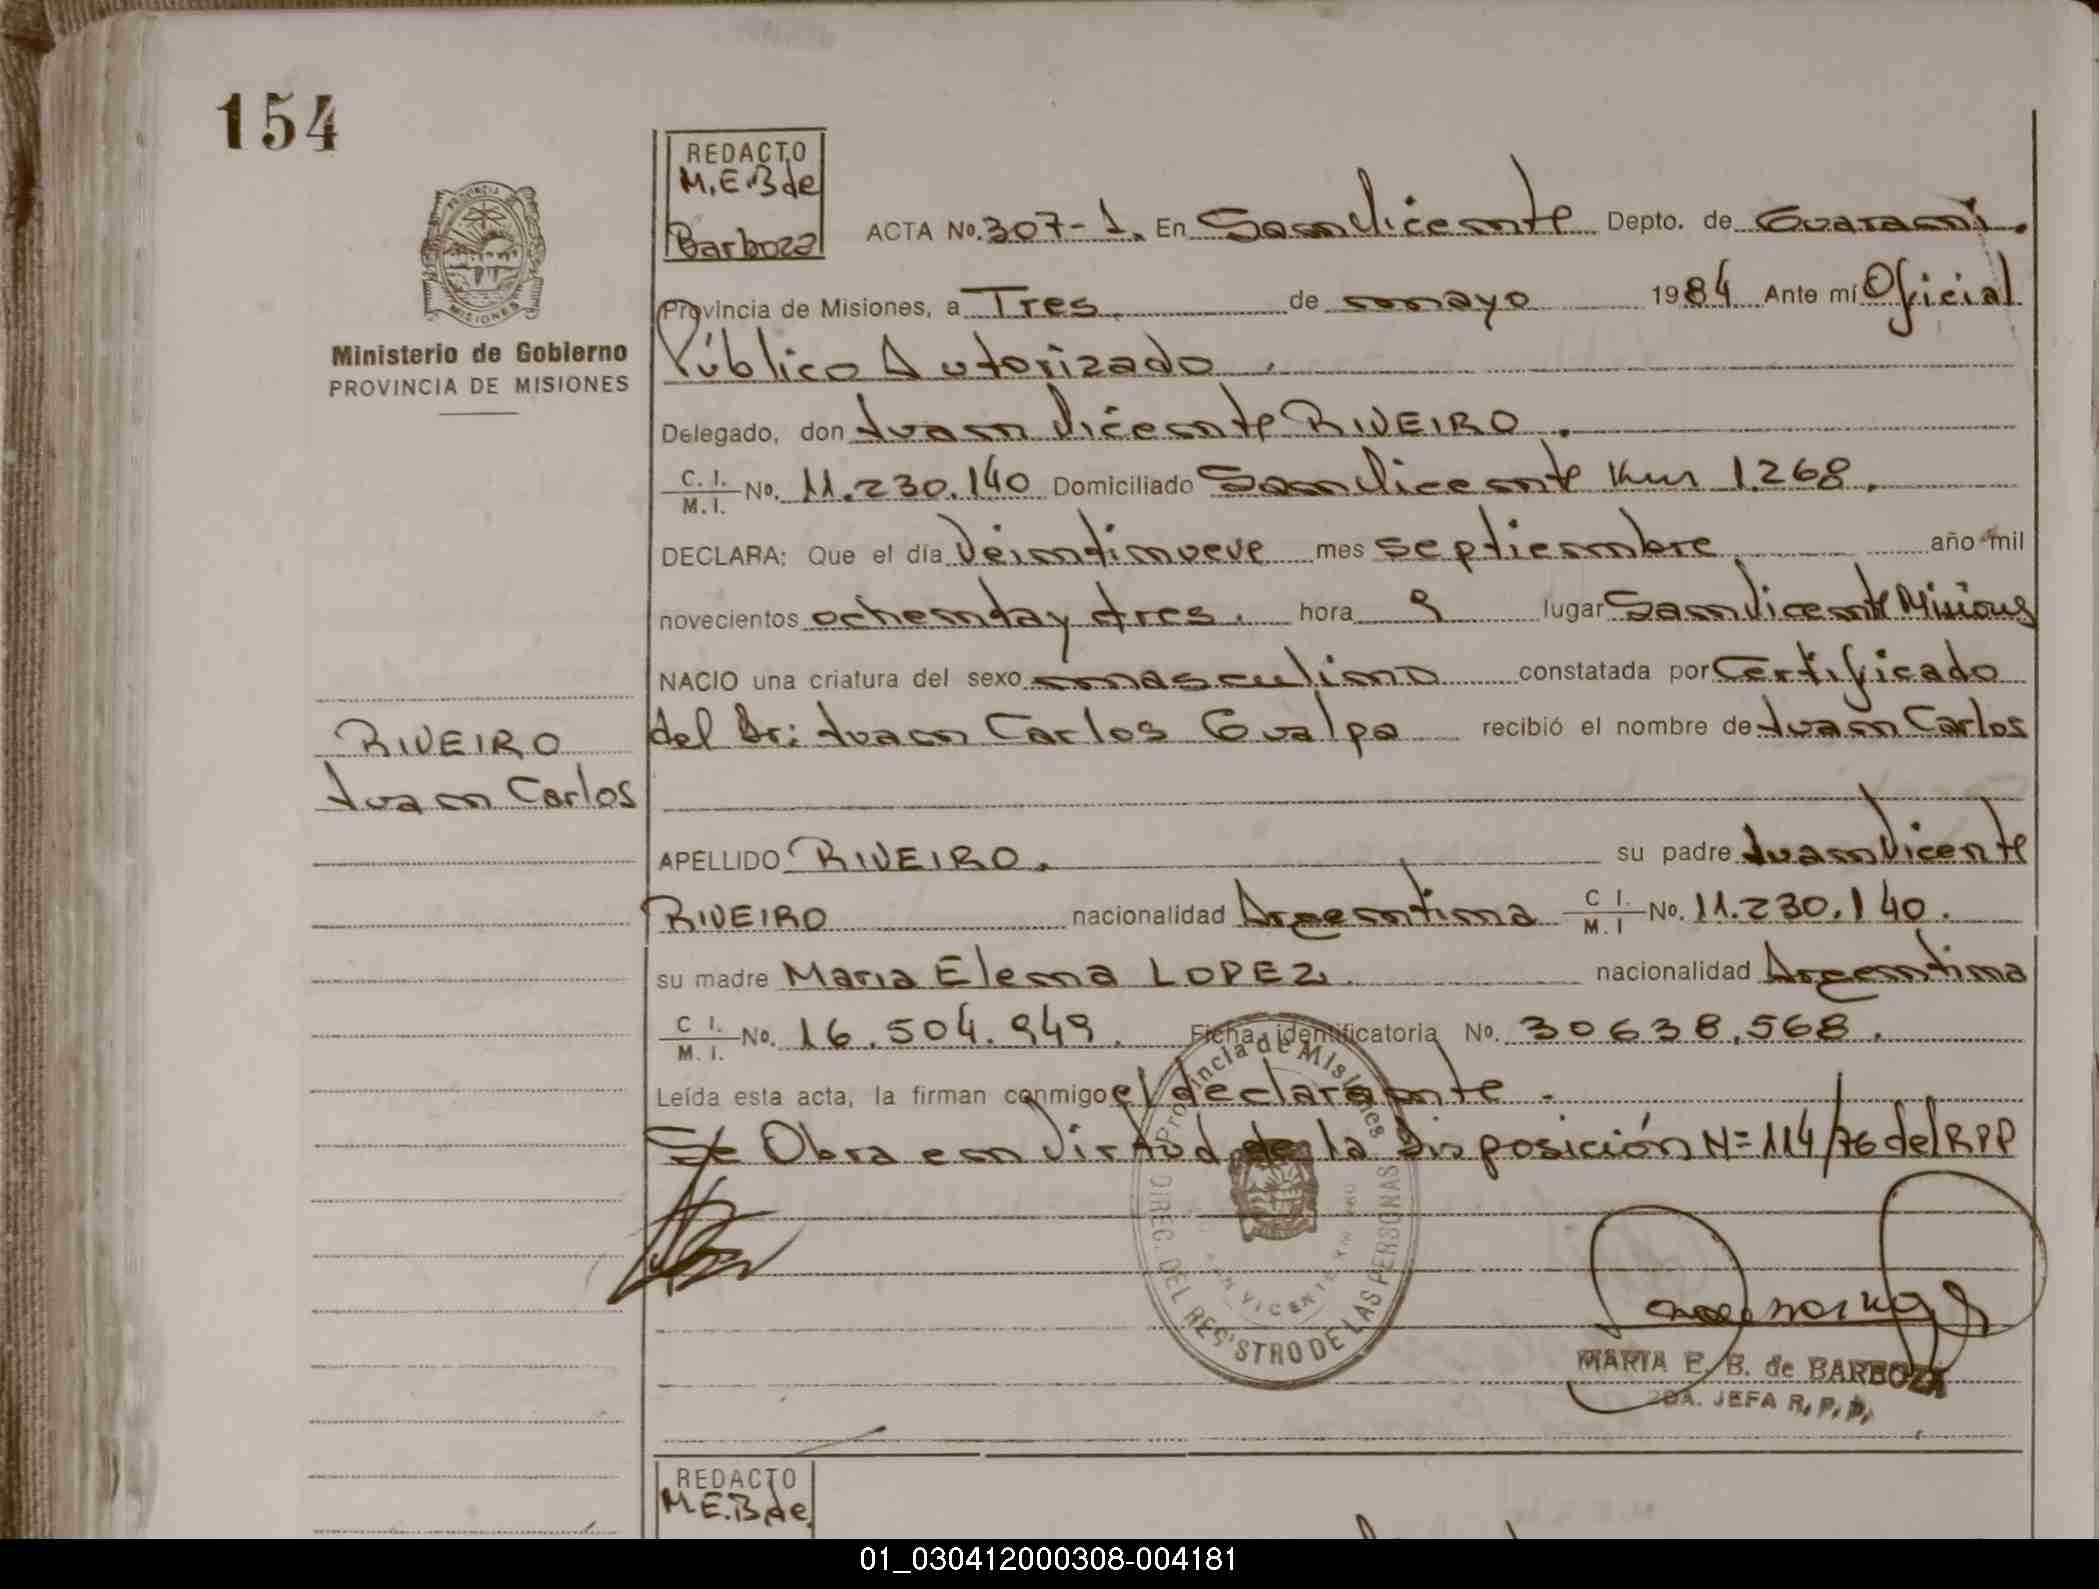 154
PROVINCIA DE
MISIONES
Ministerio de Gobierno
PROVINCIA DE MISIONES
RIVEIRO
Juan Carlos
REDACTO
M.E.B de
Barboza
ACTA No. 307-1. En San Vicente Depto. de Guaraní.
Provincia de Misiones, a Tres de mayo 1984 Ante mí Oficial
Público Autorizado.
Delegado, don Juan Vicente RIVEIRO.
C. I. / M. I. No. 11.230.140 Domiciliado San Vicente Km 1.268.
DECLARA: Que el día Veintinueve mes septiembre año mil
novecientos ochenta y tres. hora 9 lugar San Vicente Misiones
NACIO una criatura del sexo masculino constatada por Certificado
del Dr: Juan Carlos Gualpa recibió el nombre de Juan Carlos
APELLIDO RIVEIRO. su padre Juan Vicente
RIVEIRO nacionalidad Argentina C I. / M. I No. 11.230.140.
su madre Maria Elena LOPEZ. nacionalidad Argentina
C I. / M. I. No. 16.504.949. Ficha identificatoria No. 30638.568.
Leída esta acta, la firman conmigo el declarante.
Se Obra en Virtud de la Disposición N= 114/76 del RPP
Provincia de Misiones
DIREC. DEL REGISTRO DE LAS PERSONAS
SAN VICENTE
MARIA E. B. de BARBOZA
2DA. JEFA R. P. P.
REDACTO
M.E.B de
01_030412000308-004181